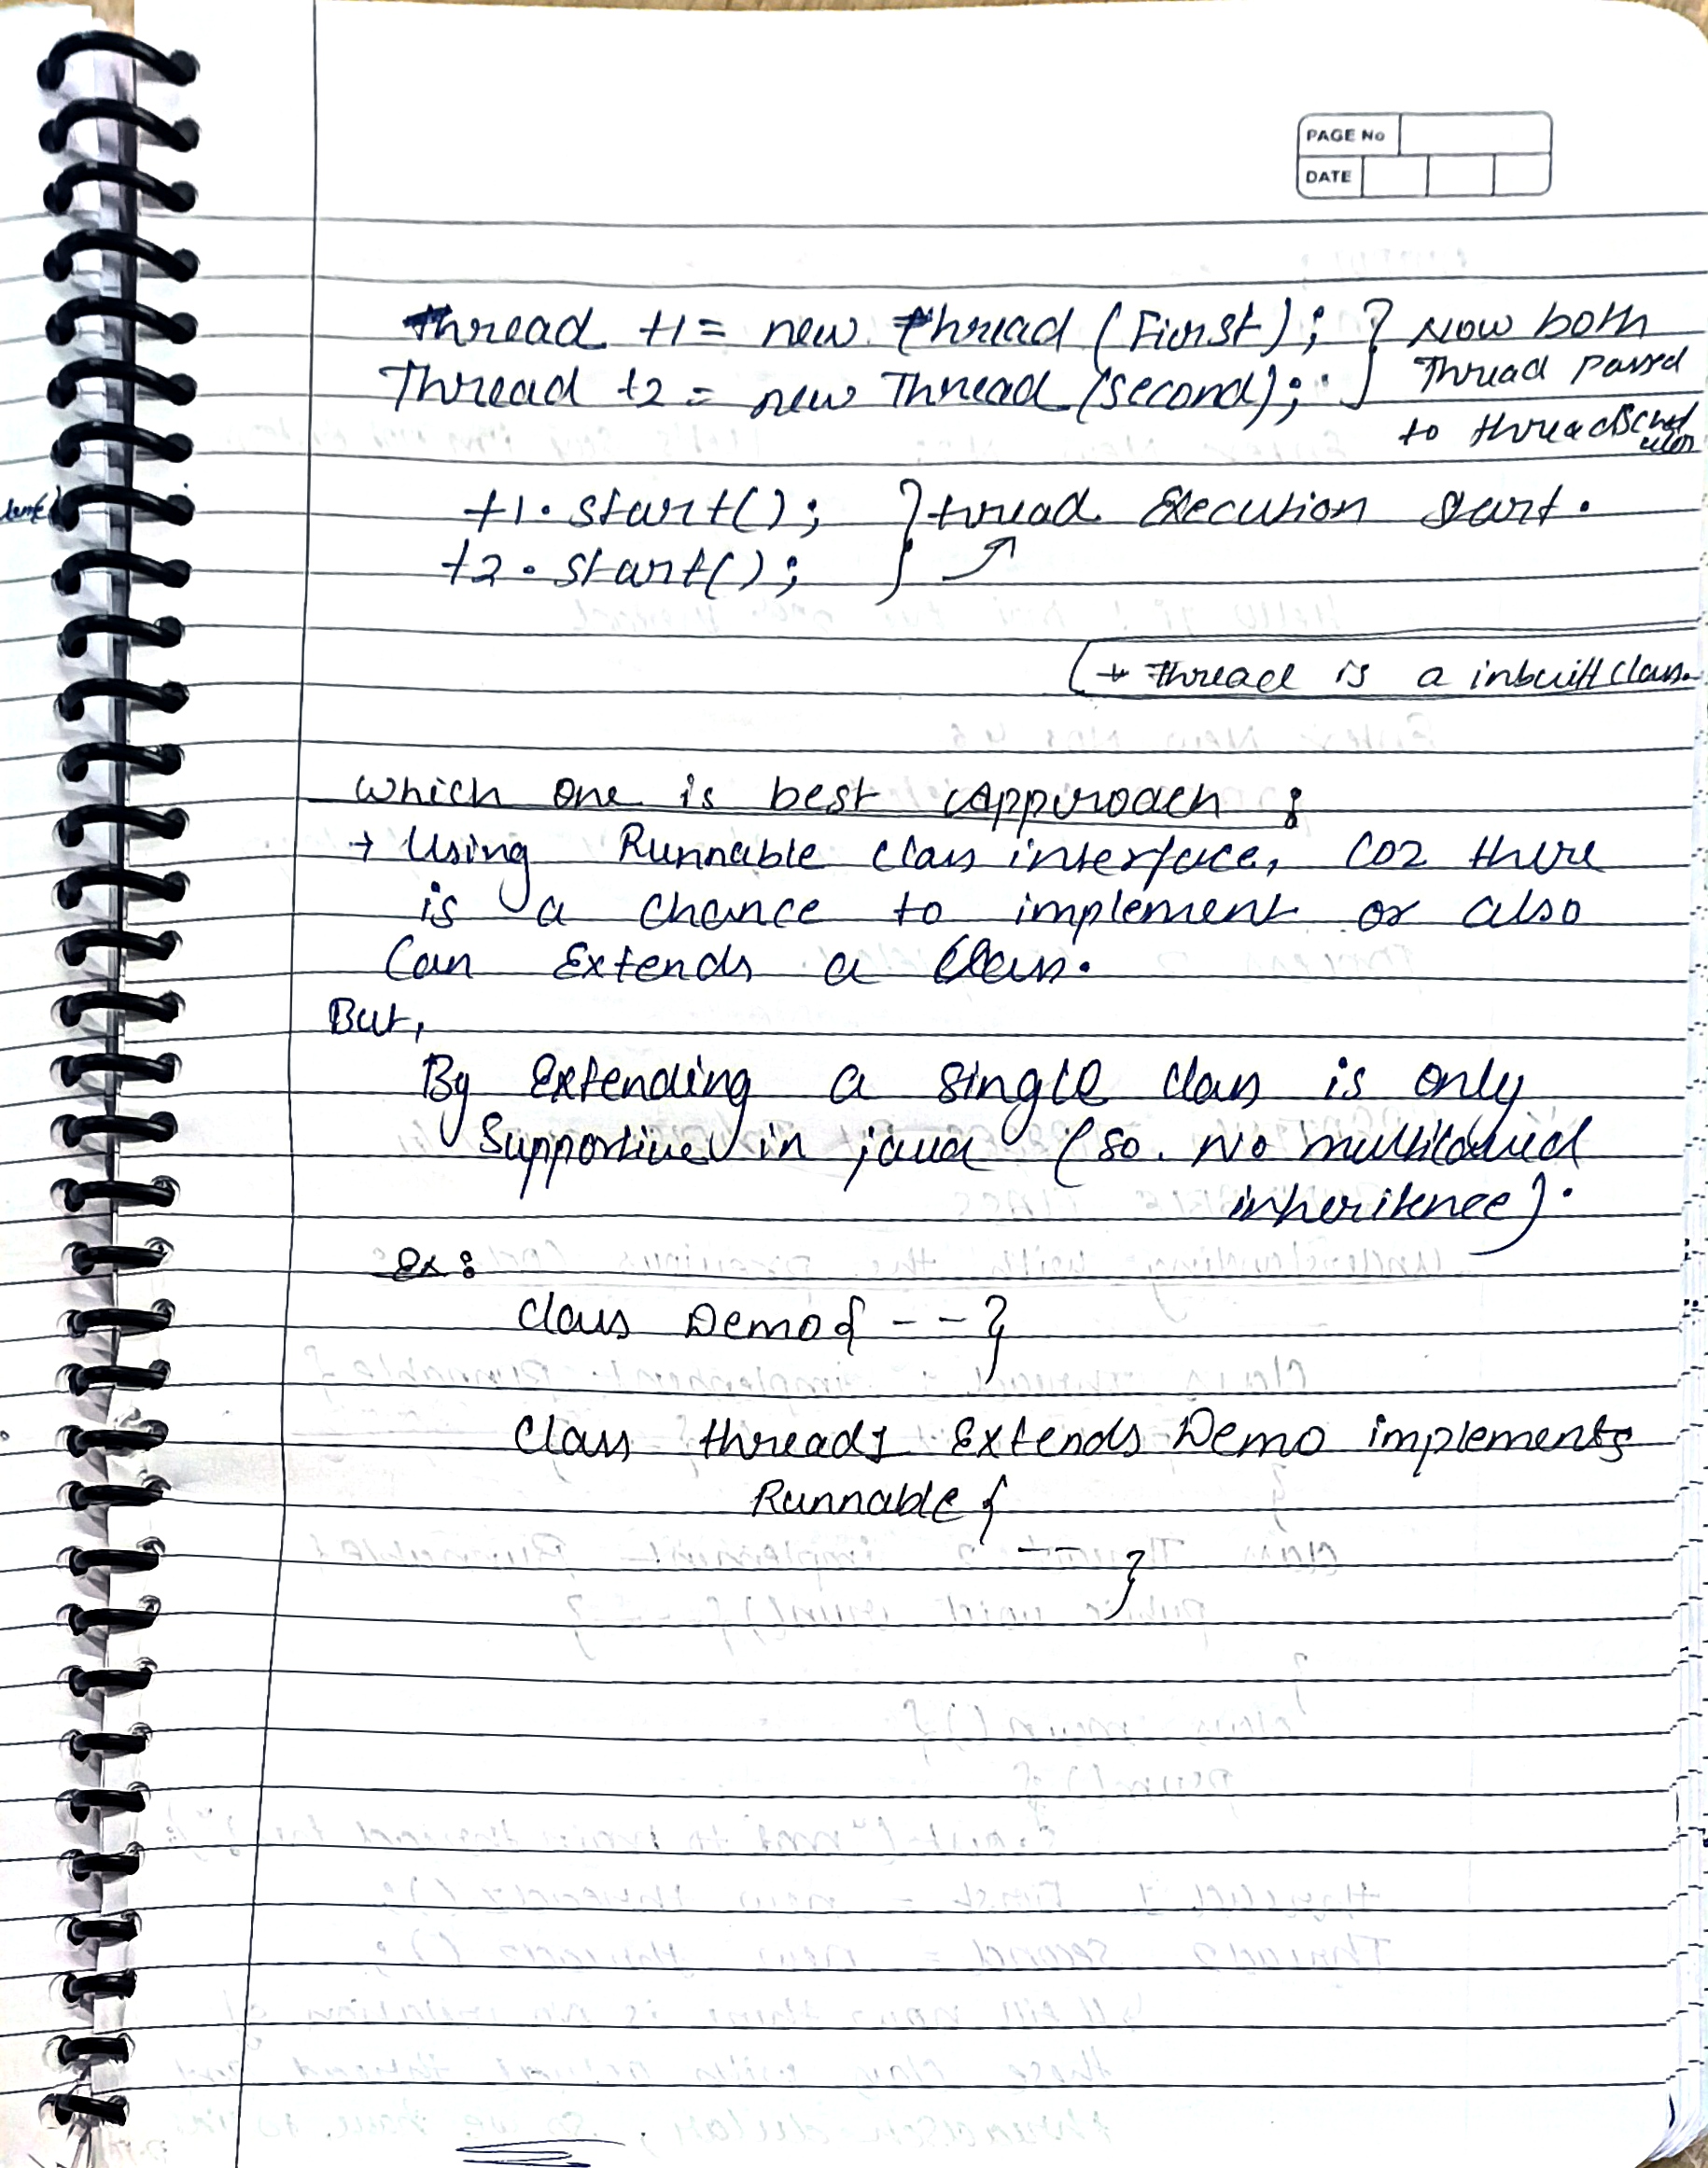 PAGE No
DATE
Thread t1 = new Thread (First); } Now both
Thread t2 = new Thread (second); } Thread passed
to thread Sched
uler
t1. start(); } thread Execution start.
t2. start(); }
→ thread is a inbuilt class.
which one is best Approach :
→ Using Runnable class interface, coz there
is a chance to implement or also
Can Extends a Class.
But,
By Extending a single class is only
Supportive in java (so. No
inheritence).
Ex :
Class Demo { - - }
Class thread1 Extends Demo implements
Runnable {
- - }